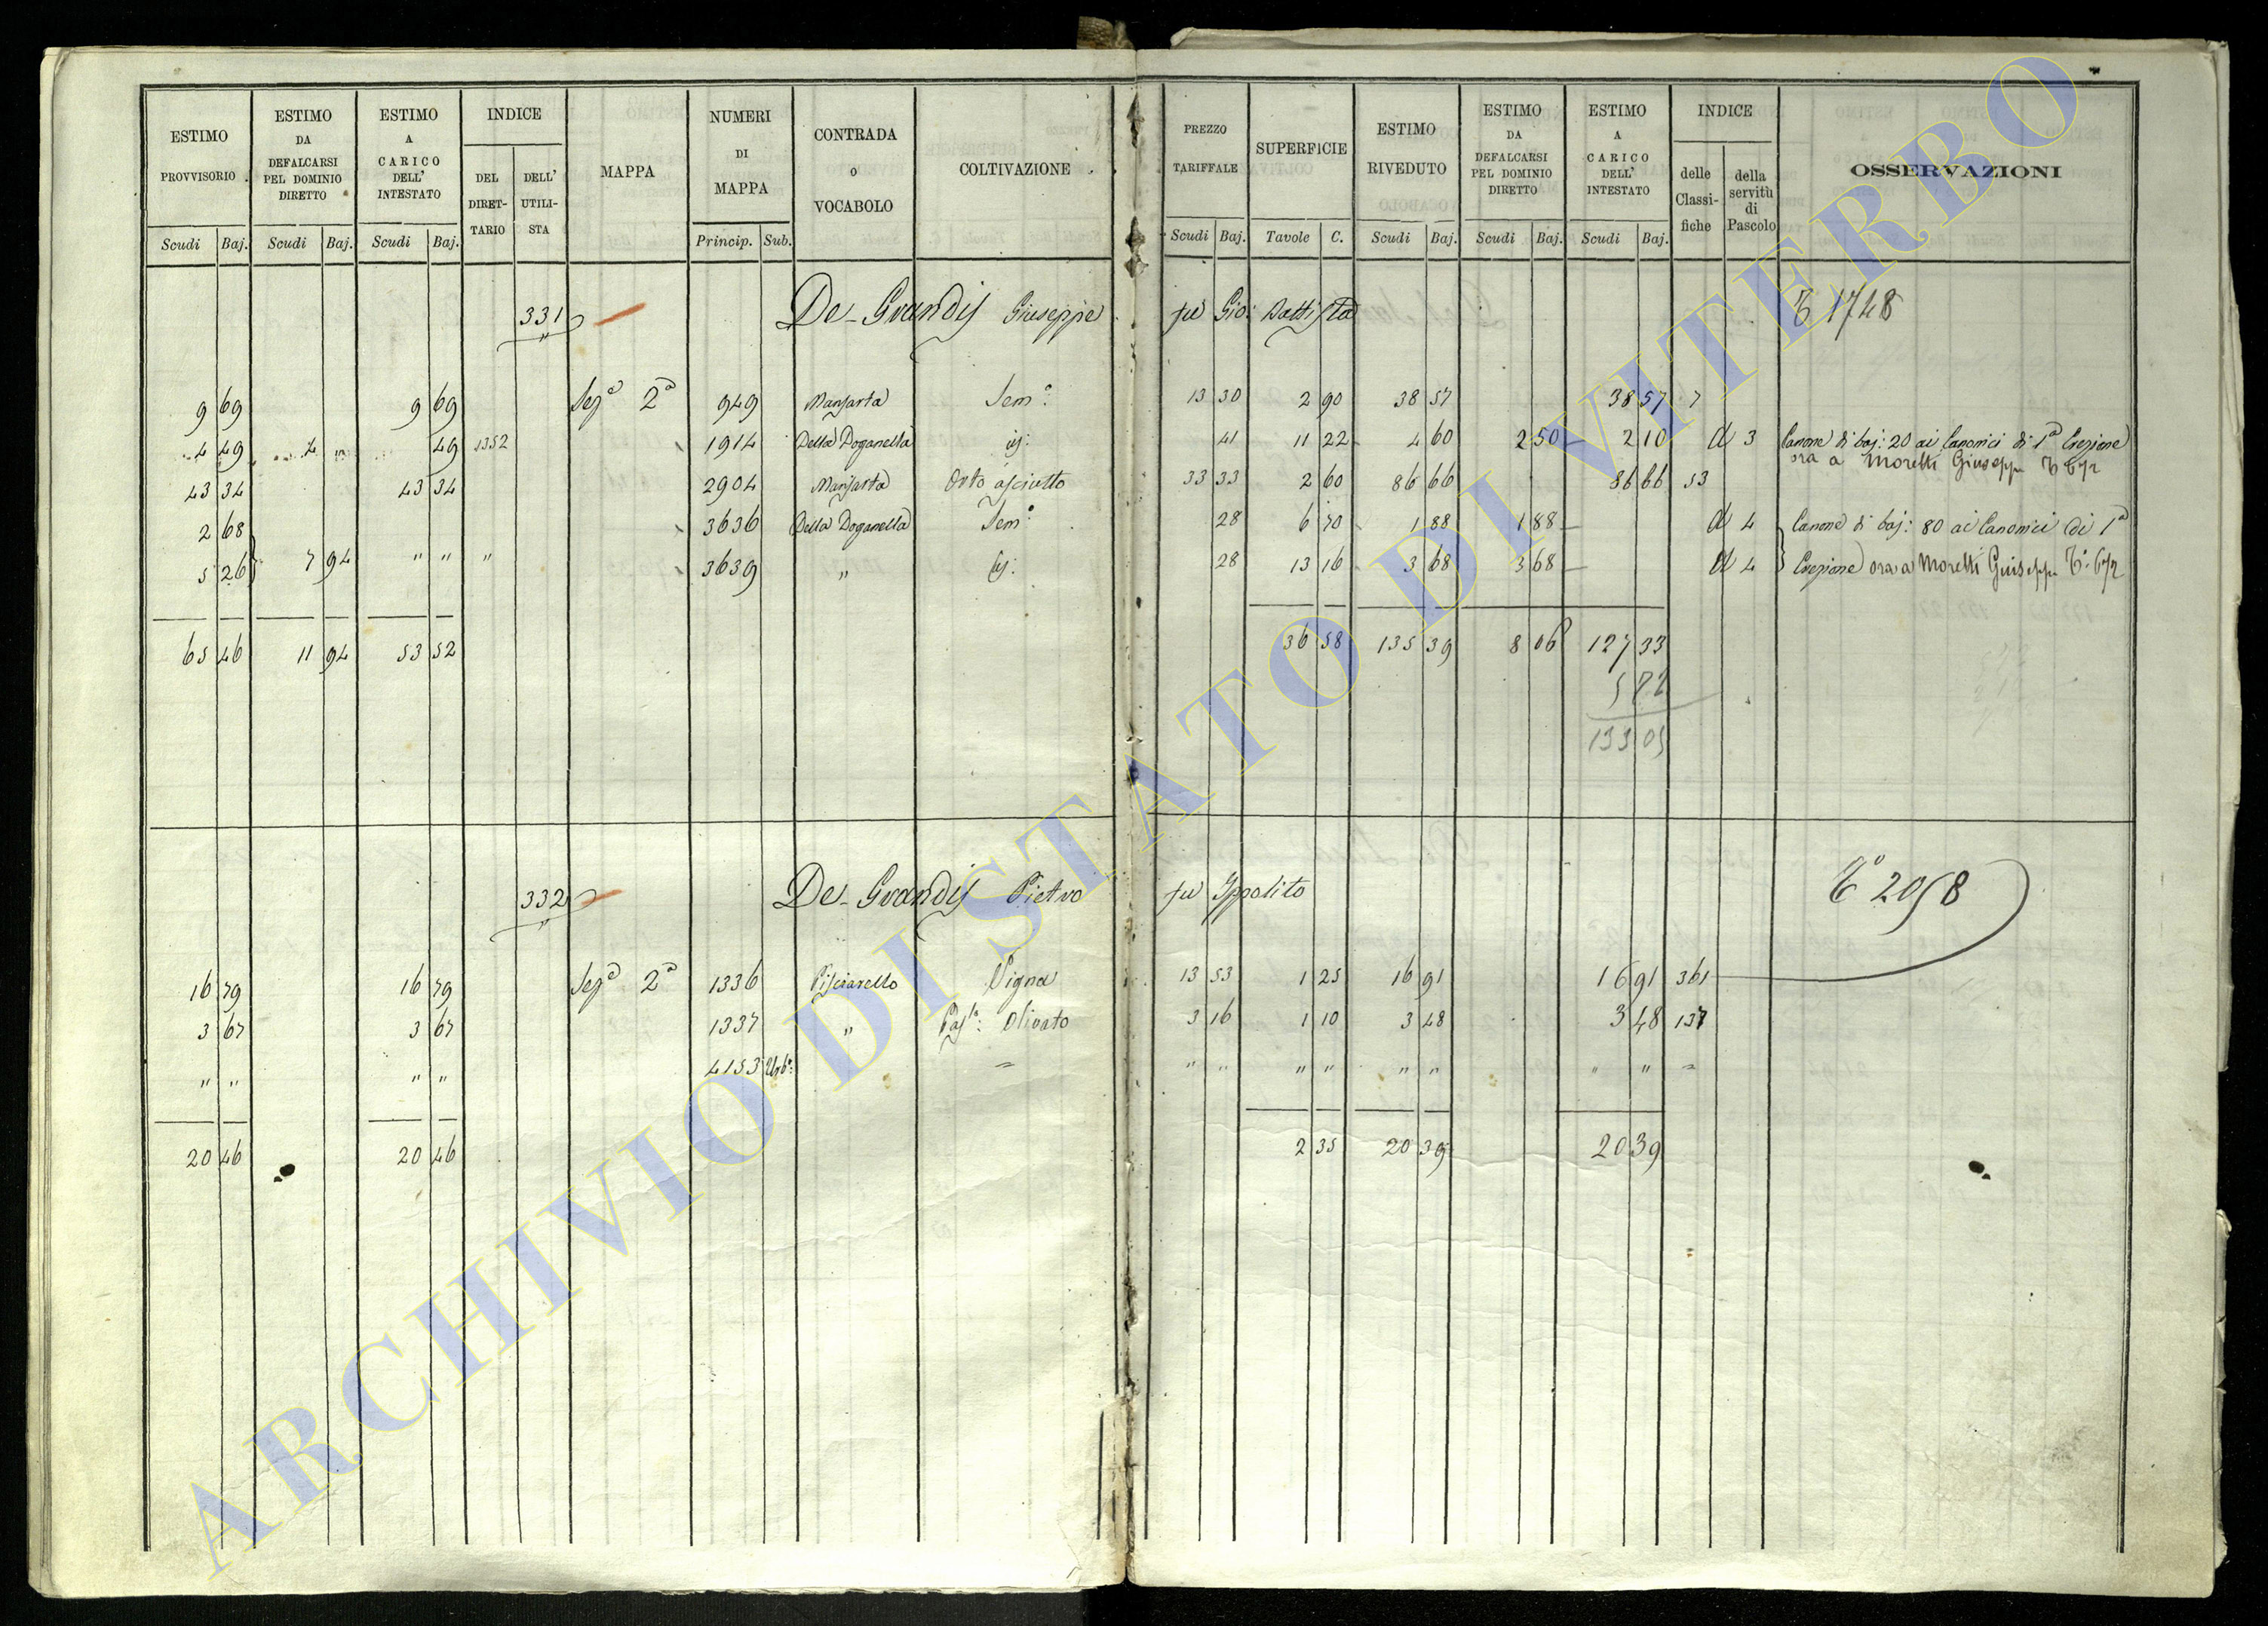 ESTIMO PROVVISORIO
ESTIMO DA DEFALCARSI PEL DOMINIO DIRETTO
ESTIMO A CARICO DELL' INTESTATO
INDICE
DEL DIRETTARIO
DELL' UTILISTA
MAPPA
NUMERI DI MAPPA
CONTRADA O VOCABOLO
COLTIVAZIONE
PREZZO TARIFFALE
SUPERFICIE
ESTIMO RIVEDUTO
ESTIMO DA DEFALCARSI PEL DOMINIO DIRETTO
ESTIMO A CARICO DELL' INTESTATO
INDICE
delle Classifiche
della servitù di Pascolo
OSSERVAZIONI
Scudi Baj. Scudi Baj. Scudi Baj. Princip. Sub. Scudi Baj. Tavole C. Scudi Baj. Scudi Baj. Scudi Baj.
331 De-Grandis Giuseppe fu Gio: Battista 1748
9 69 9 69 Sezª 2ª 949 Sem: 13 30 2 90 38 57 38 57 7
4 49 4 " 49 1352 1914 Della Doganella id: 41 11 22 4 60 2 50 2 10 d 3 Canone di baj: 20 ai Canonici di 1ª Erezione
ora a Moretti Giuseppe
43 34 43 34 2904 Orto asciutto 33 33 2 60 86 66 86 66 53
2 68 3636 Della Doganella Sem: 28 6 70 1 88 1 88 d 4 Canone di baj: 80 ai Canonici di 1ª
5 26 7 94 " " " 3639 " id: 28 13 16 3 68 3 68 d 4 Erezione ora a Moretti Giuseppe
65 46 11 94 53 52 36 58 135 39 8 06 127 33
5 72
133 05
332 De-Grandis Pietro fu Ippolito 2058
16 79 16 79 Sezª 2ª 1336 Pisciarello Vigna 13 53 1 25 16 91 16 91 361
3 67 3 67 1337 " Pasº: Olivato 3 16 1 10 3 48 3 48 137
" " " " 4153 Urbº: = " " " " " " " " =
20 46 20 46 2 35 20 39 20 39
ARCHIVIO DI STATO DI VITERBO